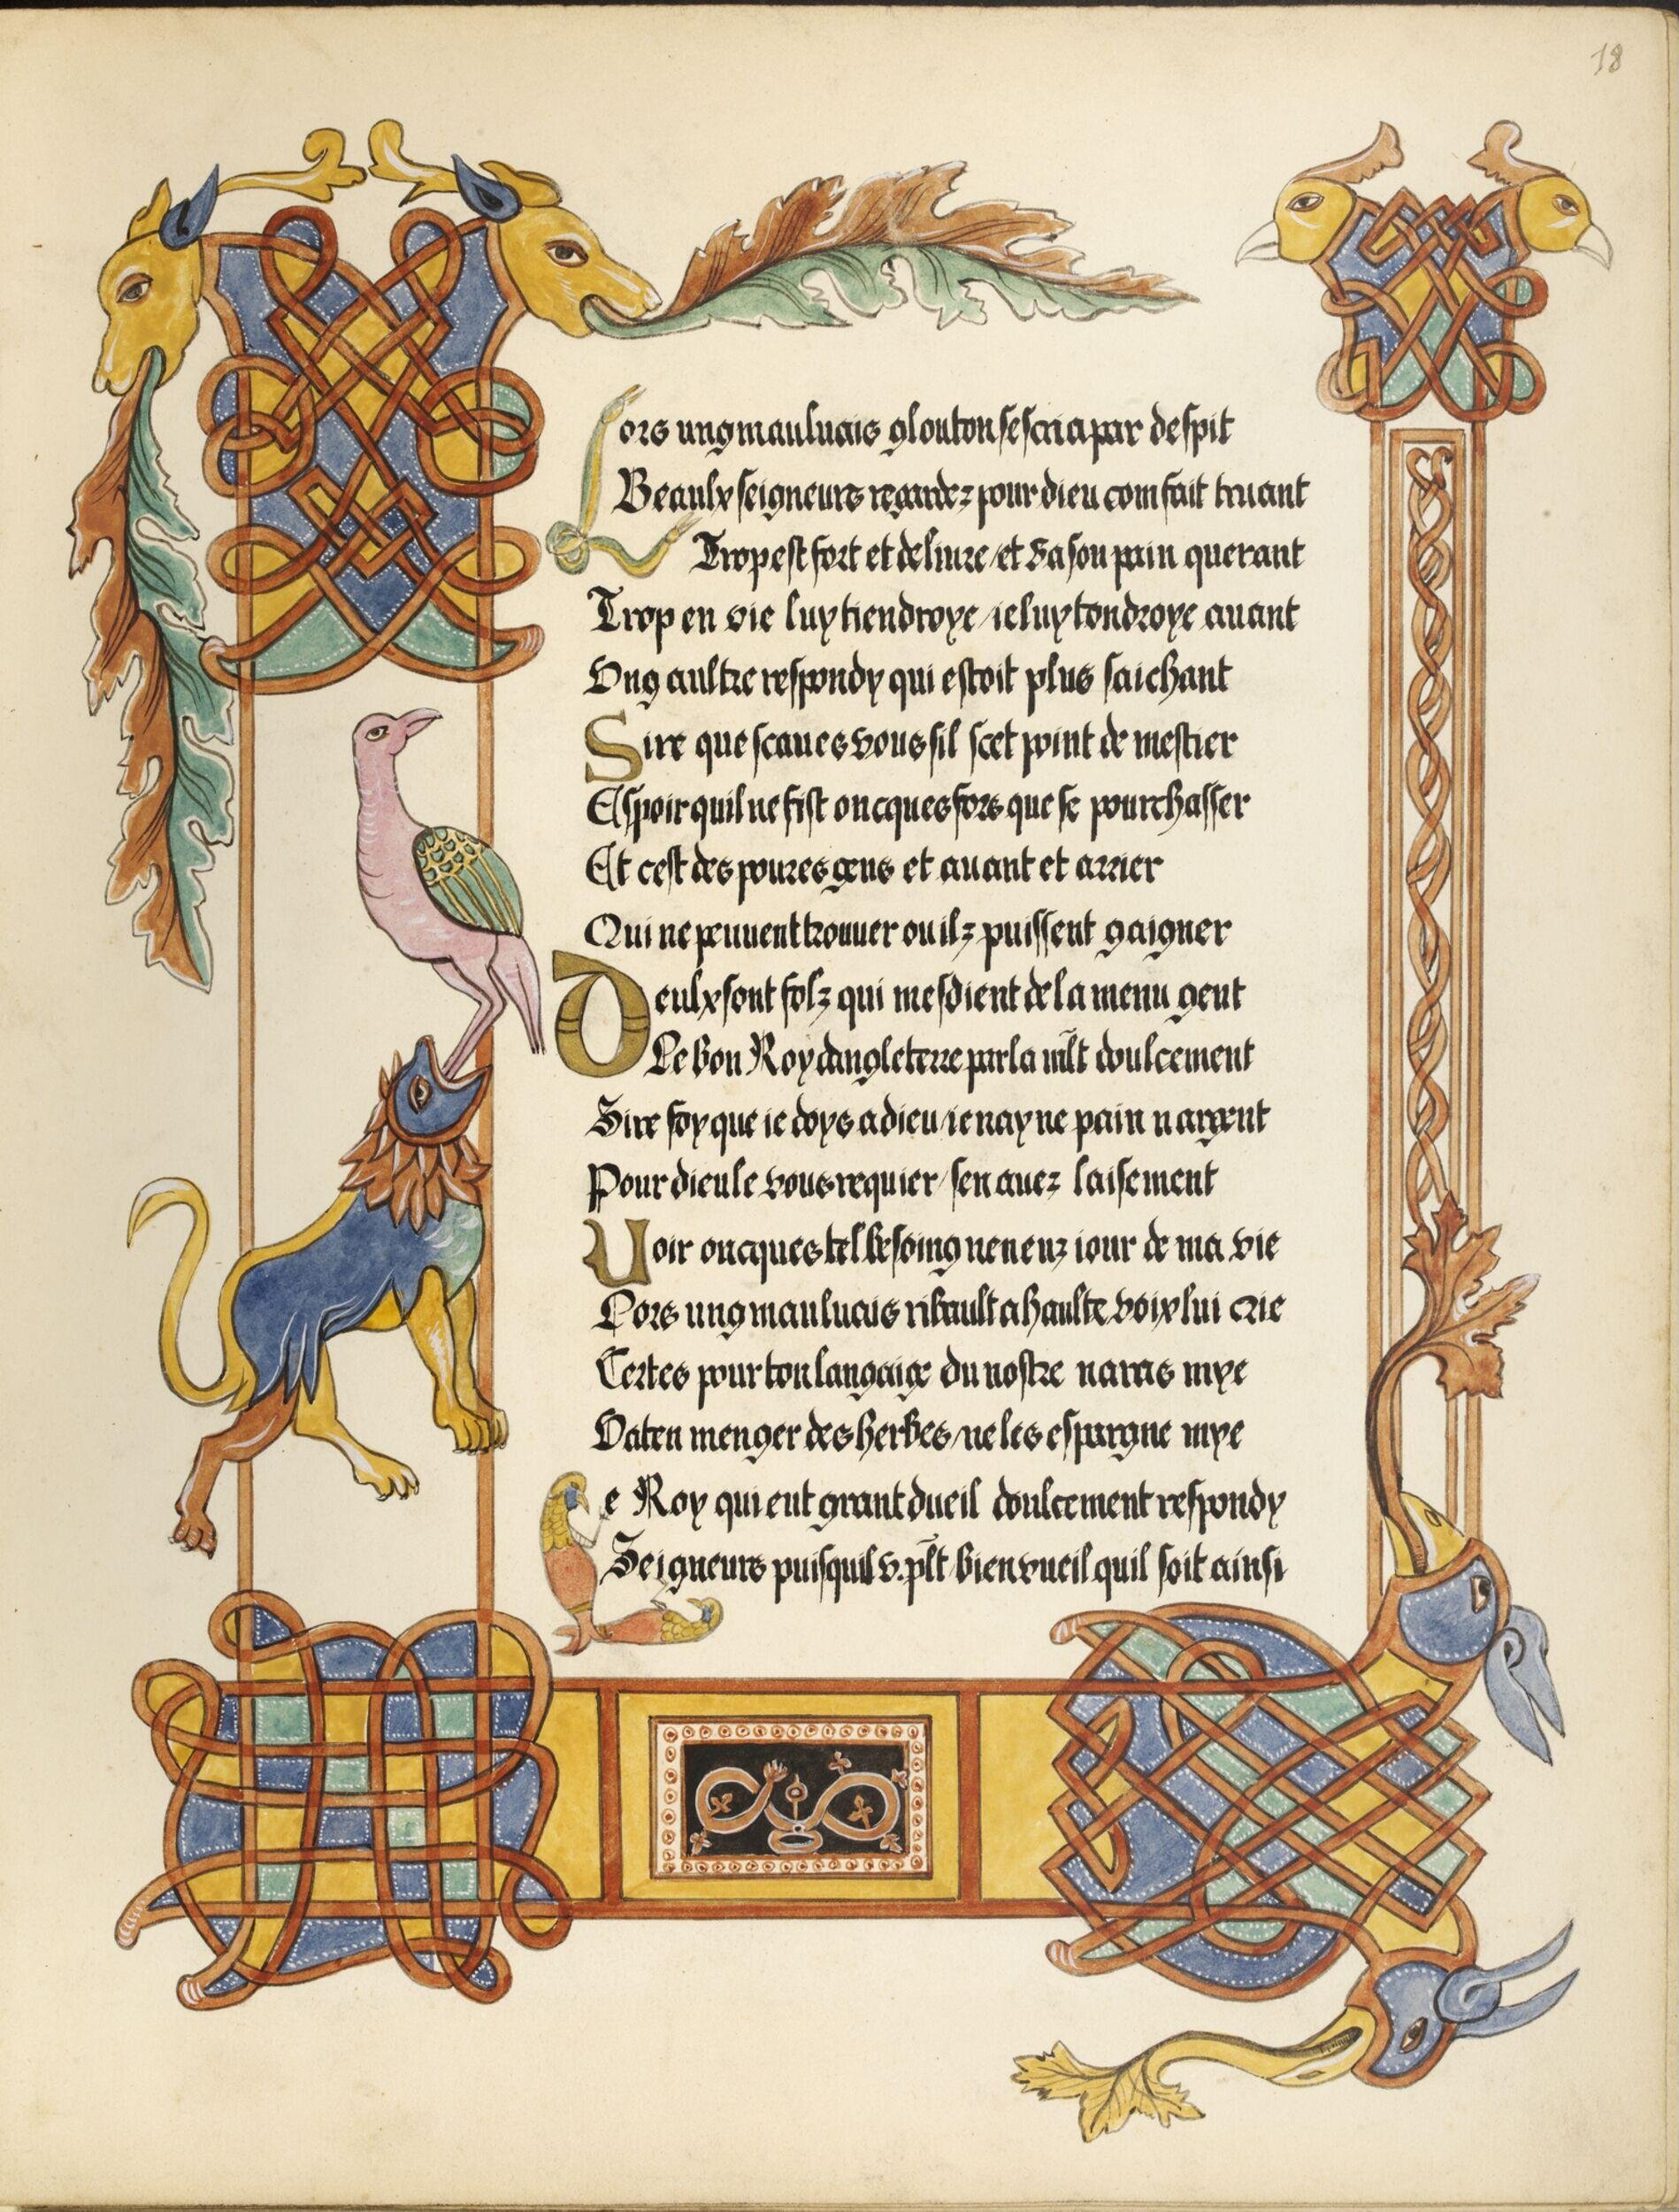 18
Lors ung mauluais glouton sescria par despit
Beaulx seigneurs regardez pour dieu com fait truant
Trop est fort et deliure / et va son pain querant
Trop en vie luy tiendroye / ie luy tondroye auant
Ung aultre respondy qui estoit plus saichant
Sire que scaues vous sil scet point de mestier
Espoir quil ne fist oncques fors que se pourchasser
Et cest des poures gens et auant et arrier
Qui ne peuuent trouuer ou ilz puissent gaigner
Deulx sont folz qui mesdient de la menu gent
Le bon Roy dangleterre parla mlt doulcement
Sire foy que ie doys a dieu / ie nay ne pain nargent
Pour dieu le vous requier / sen auez laisement
Uoir oncques tel besoing neneuz iour de ma vie
Lors ung mauluais ribault a haulte voix lui crie
Certes pour ton langaige du nostre naras mye
Vaten menger des herbes / ne les espargne mye
Le Roy qui eut grant dueil doulcement respondy
Seigneurs puisquil v. plt bien vueil quil soit ainsi